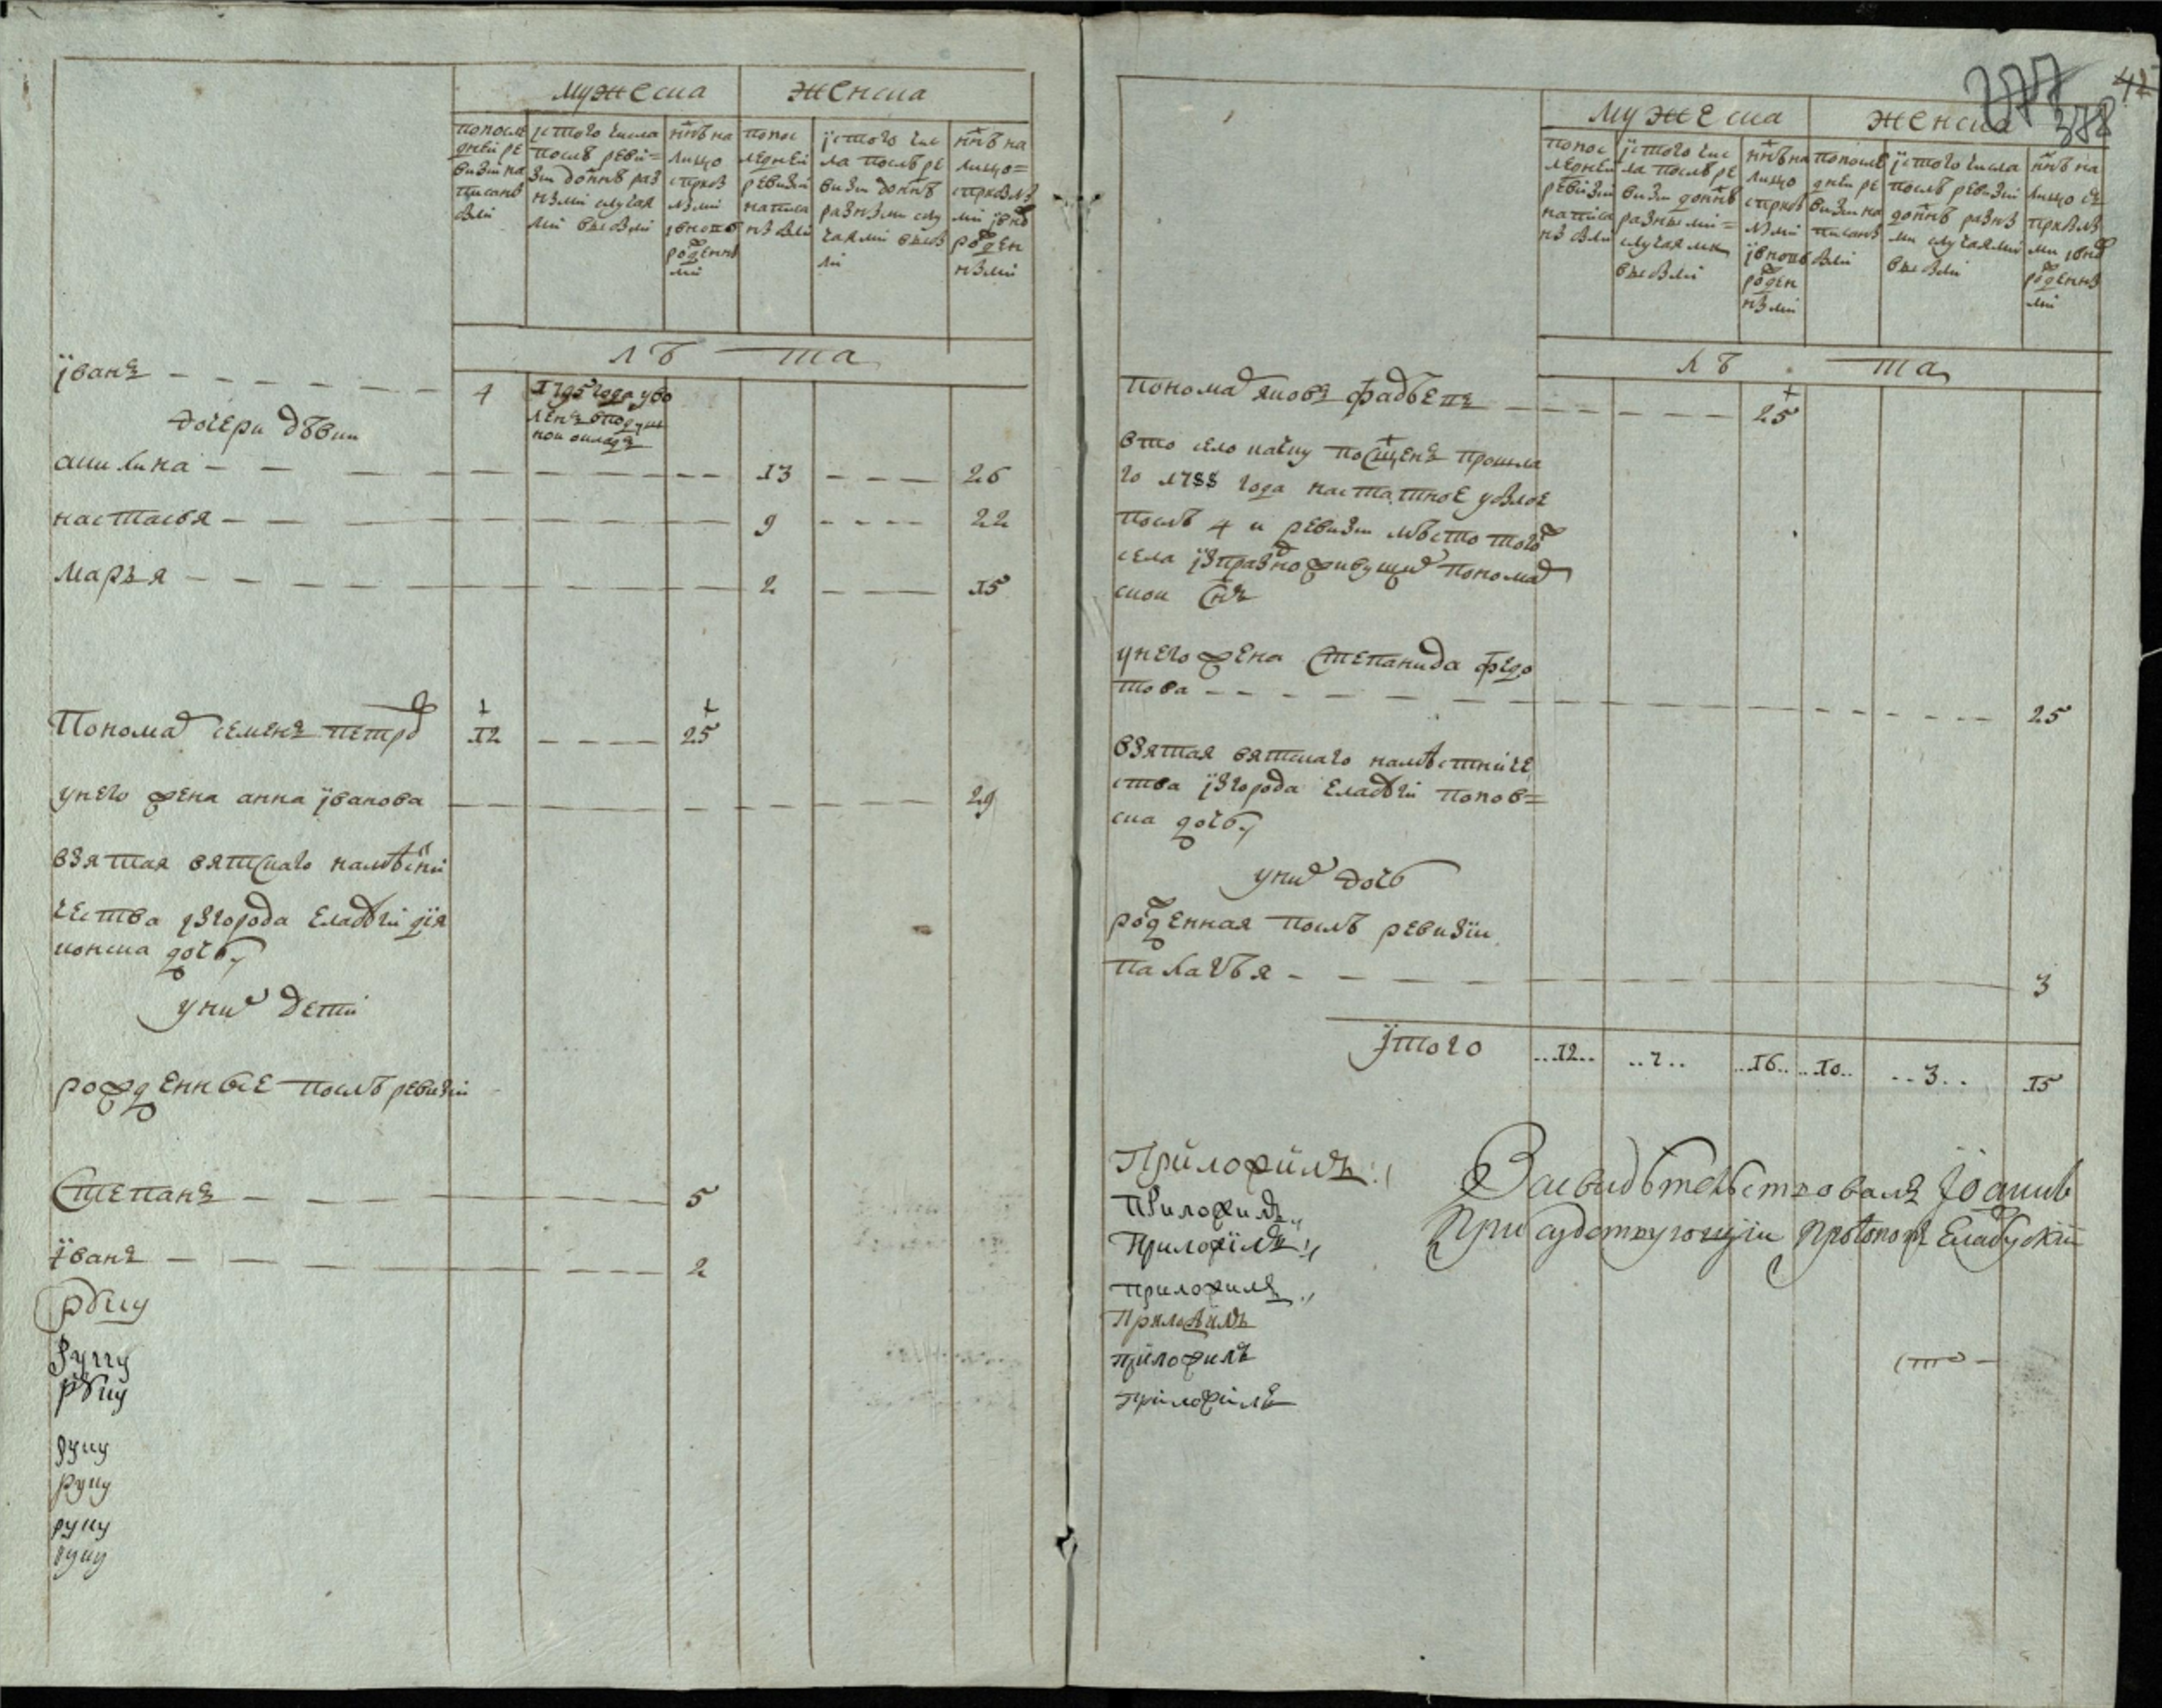 мужеска женска
попосле
дней ре
визіи на
писанъ
былй
ізтого числа
послѣ реви=
зіи донн҃ѣ раз
нымй случая
мй выбылй
нн҃ѣ на
лицо
спрібы
лымй
ивново
рожденны
мй
попос
ледней
ревизій
написа
нъ былй
ізтого чис
ла послѣ ре
визіи донн҃ѣ
разными слу
чаямй выбы
лй
нн҃ѣ на
лицо=
спрібылы
мй івно
рожден
нымй
лѣ та
іванъ 4 1795 года уво
ленъ вподуш
ной окладъ
дочери дѣвки
акилина 13 26
настасья 9 22
марья 2 15
Пономар семенъ петро 12 25
унего жена анна іванова 29
взятая вятскаго намѣстни
чества ізгорода елабуги дія
конска дочь
уних детй
рожденные послѣ ревизій
Степанъ 5
іванъ 2
руку
руку
руку
руку
руку
руку
руку
277 42
378
мужеска женска
попос
ледней
ревізій
напіса
нъ былй
ізтого чис
ла послѣ ре
визіи донн҃ѣ
разнымй=
случаями
выбылй
нн҃ѣ на
лицо
спрібы
лымй
івново
рожден
нымй
попосле
дней ре
визіи на
писанъ
былй
ізтого числа
послѣ ревизій
донн҃ѣ разны
ми случаямй
выбылй
нн҃ѣ на
лицо съ
прібылы
ми івно
рожденны
мй
лѣ та
пономар яковъ фадѣевъ 25
вто село посщенъ прошла
го 1788 года настатное убылое
послѣ 4 й ревизіи мѣсто того
села ізпраздно живущих пономар
ской сн҃ъ
унего жена Степанида федо
това 25
взятая вятскаго намѣстниче
ства ізгорода елабуги попов=
ска дочь
уних дочь
рожденная послѣ ревизіи
палагѣя 3
ітого ..12.. ..16.. ..10.. ..3.. 15
Приложилъ
Приложилъ
Приложилъ
приложилъ
Приложилъ
приложилъ
приложилъ
Засвидѣтельствовалъ
присудствующіи протопопъ Елабускій